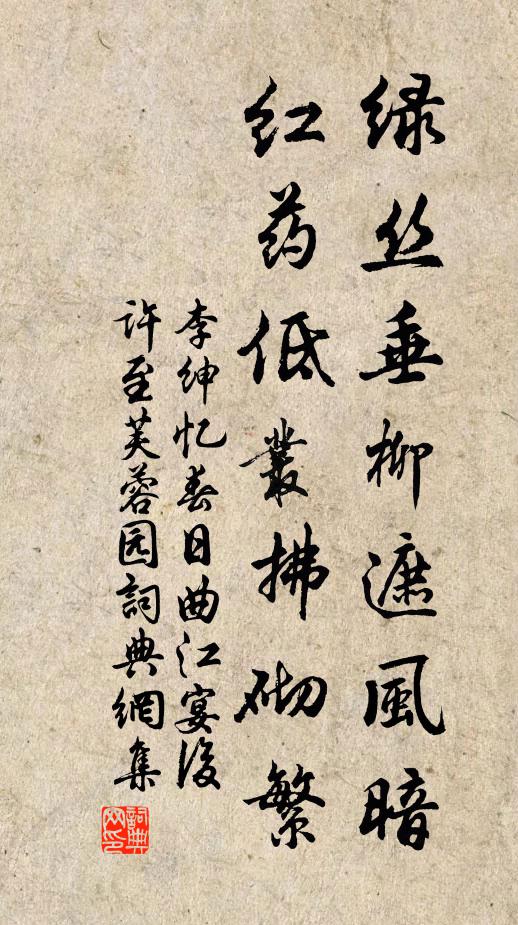 绿丝垂柳遮風暗
红药低叢拂砌繁
李绅忆春日曲江宴後
许至芙蓉园詞典網集
詞典网印